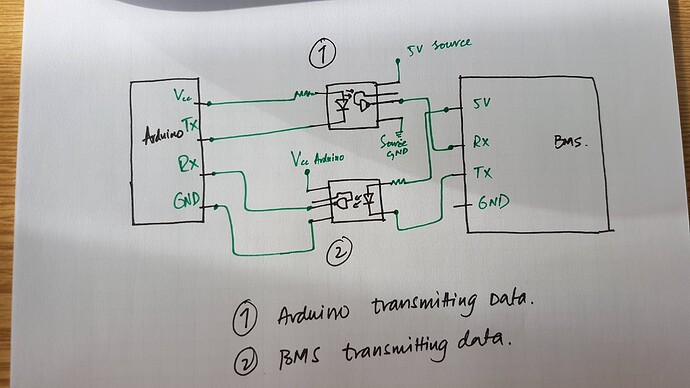 ①
5V source
Vcc
Arduino
Tx
Rx
GND
Source
GND
Vcc Arduino
5V
Rx
BMS.
Tx
GND
②
① Arduino transmitting Data.
② BMS transmitting data.